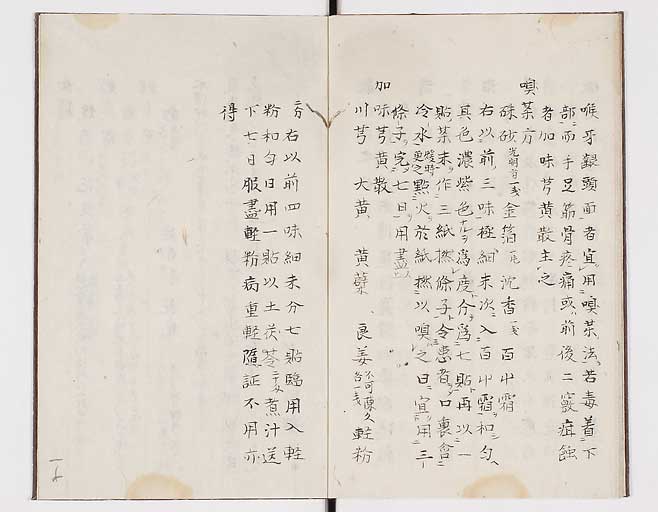 喉牙齦頭面者宜用嗅藥法若毒着下
部而手足筋骨疼痛或前後二竅疳蝕
者加味芎黄散主之
嗅茶方
硃砂 金箔 沈香 百中霜
右以前三味極細末次入百中霜和匀
其色濃紫色ナルヲ為度分為七貼再以一
貼藥末作三紙撚條子令患者口裏含
冷水點火於紙撚以嗅之日宜用三
條子完七日用盡
加味芎黄散
川芎 大黄 黄蘗 良姜 不可陳久各一戔 輕粉
二分 右以前四味細末分七貼臨用入輕
粉和匀日用一貼以土茯苓煮汁送
下七日服盡輕粉病重輕隱証不用亦
得